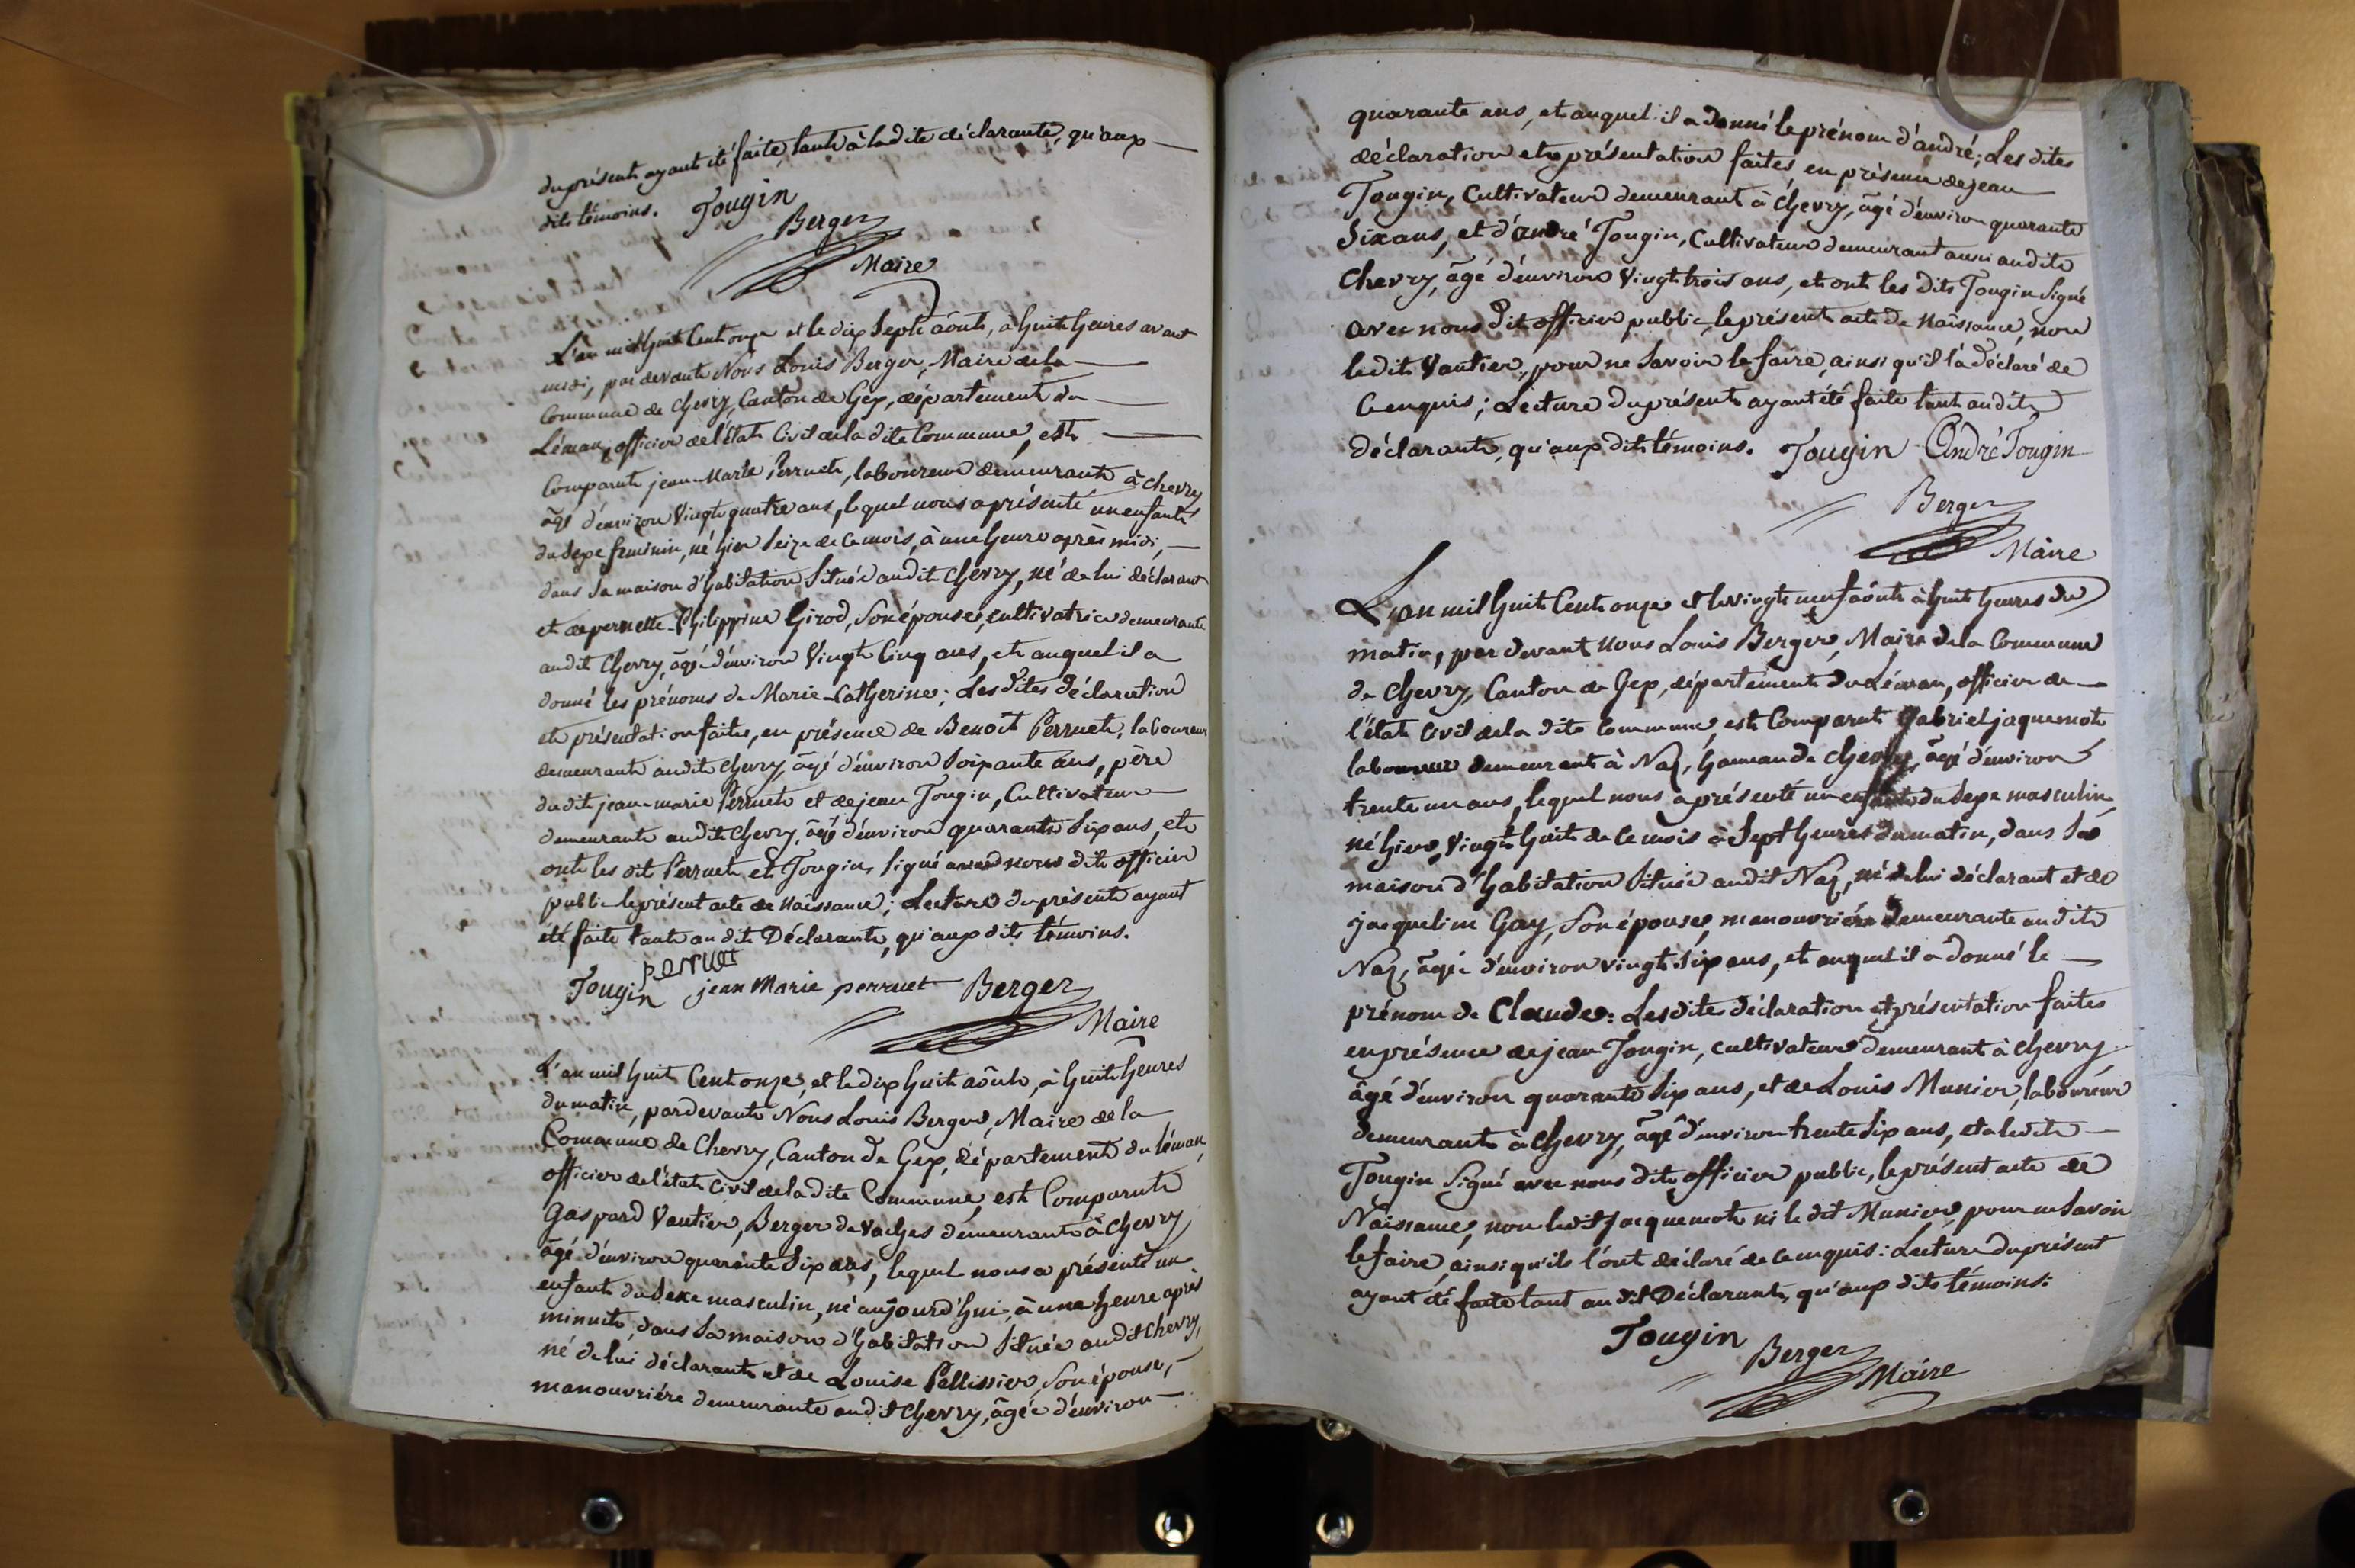 du présent ayant été faite, tant à la dite déclarante, qu'aux —
dits témoins. Tougin
Berger
Maire
L'an mil huit cent onze et le dix sept août, à huit heures avant
midi, par devant Nous Louis Berger, Maire de la —
Commune de Chevry, Canton de Gex, département du —
Léman, officier de l'état Civil de la dite Commune, est —
Comparut jean-Marie Perruet, laboureur demeurant à chevry
âgé d'environ Vingt quatre ans, lequel nous a présenté un enfant
du Sexe féminin, né hier Seize de ce mois, à une heure après midi, —
dans Sa maison d'habitation Située au dit Chevry, né de lui déclarant
et de pernette-Philippine Girod, Son épouse, cultivatrice demeurante
audit Chevry, âgée d'environ Vingt Cinq ans, et auquel il a
donné les prénoms de Marie-Catherine; Les dites Déclaration
et présentation faites, en présence de Benoît Perruet, laboureur
demeurant audit Chevry, âgé d'environ Soixante ans, père
du dit jean-marie Perruet et de jean Tougin, Cultivateur —
demeurant audit Chevry, âgé d'environ quarante Six ans, et
ont les dit Perruet et Tougin, Signé avec nous dit officier
public le présent acte de Naissance; Lecture du présent ayant
été faite tant au dit Déclarant, qu'aux dits témoins.
perruet
Tougin jean Marie perruet Berger
Maire
L'an mil huit Cent onze, et le dix huit août, à huit heures
du matin, par devant Nous Louis Berger, Maire de la
Commune de Chevry, Canton de Gex, département du Léman,
officier de l'état Civil de la dite Commune, est Comparut
Gaspard Vautier, Berger de Vaches demeurant à Chevry,
âgé d'environ quarante Six ans, lequel nous a présenté un
enfant du Sexe masculin, né aujourd'hui, à une heure après
minuit, dans Sa maison d'habitation Située au dit Chevry,
né de lui déclarant et de Louise Pellissier, Son épouse, —
manouvriére demeurante au dit Chevry, âgée d'environ —
quarante ans, et auquel il a donné le prénom d'andré; Les dites
déclaration et présentation faites, en présence de jean —
Tougin, Cultivateur demeurant à Chevry, âgé d'environ quarante
Six ans, et d'andré Tougin, Cultivateur demeurant aussi au dit
Chevry, âgé d'environ Vingt trois ans, et ont les dits Tougin Signé
avec nous dit officier public, le présent acte de Naissance, non
le dit Vautier, pour ne Savoir le faire, ainsi qu'il l'a Déclaré de
Ce enquis; Lecture du présent ayant été faite tant au dit
Déclarant, qu'aux dits témoins. Tougin André Tougin
Berger
Maire
L'an mil huit Cent onze et le vingt neuf août à huit heures du
matin, par devant Nous Louis Berger, Maire de la Commune
de Chevry, Canton de Gex, département du Léman, officier de —
l'état Civil de la dite Commune, est Comparut Gabriel jaquemot
laboureur demeurant à Naz, hameau de Chevry, âgé d'environ
trente un ans, lequel nous a présenté un enfant du Sexe masculin,
né hier, Vingt huit de ce mois à Sept heures du matin, dans Sa
maison d'habitation Située audit Naz, né de lui déclarant et de
jaqueline Gay, Son épouse, manouvriére demeurante au dit
Naz, âgée d'environ vingt Six ans, et auquel il a donné le —
prénom de Claude: Les dite déclaration et présentation faites
en présence de jean Tougin, cultivateur demeurant à Chevry
âgé d'environ quarante Six ans, et de Louis Munier, laboureur
demeurant à Chevry, âgé d'environ trente Six ans, et a le dit —
Tougin Signé avec nous dit officier public, le présent acte de
Naissance, non le dit jacquemot ni le dit Munier, pour ne Savoir
le faire, ainsi qu'ils l'ont déclaré de ce enquis: Lecture du présent
ayant été faite tant au dit Déclarant, qu'aux dits témoins:
Tougin
Berger
Maire